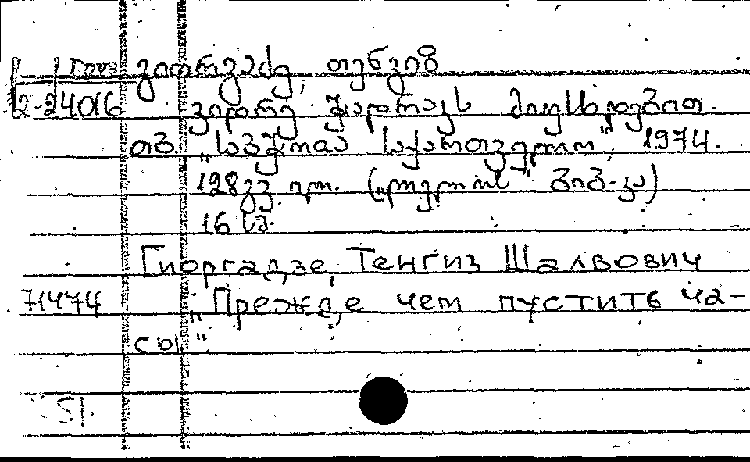 გიორგაძე, თენგიზ
2-24016 ვიდრე
თბ. „საბჭოთა საქართველო", 1974.
128 გვ. ილ.
16 სმ.
Гиоргадзе, Тенгиз Шалвович
71474 „Прежде чем пустить ча-
сы".